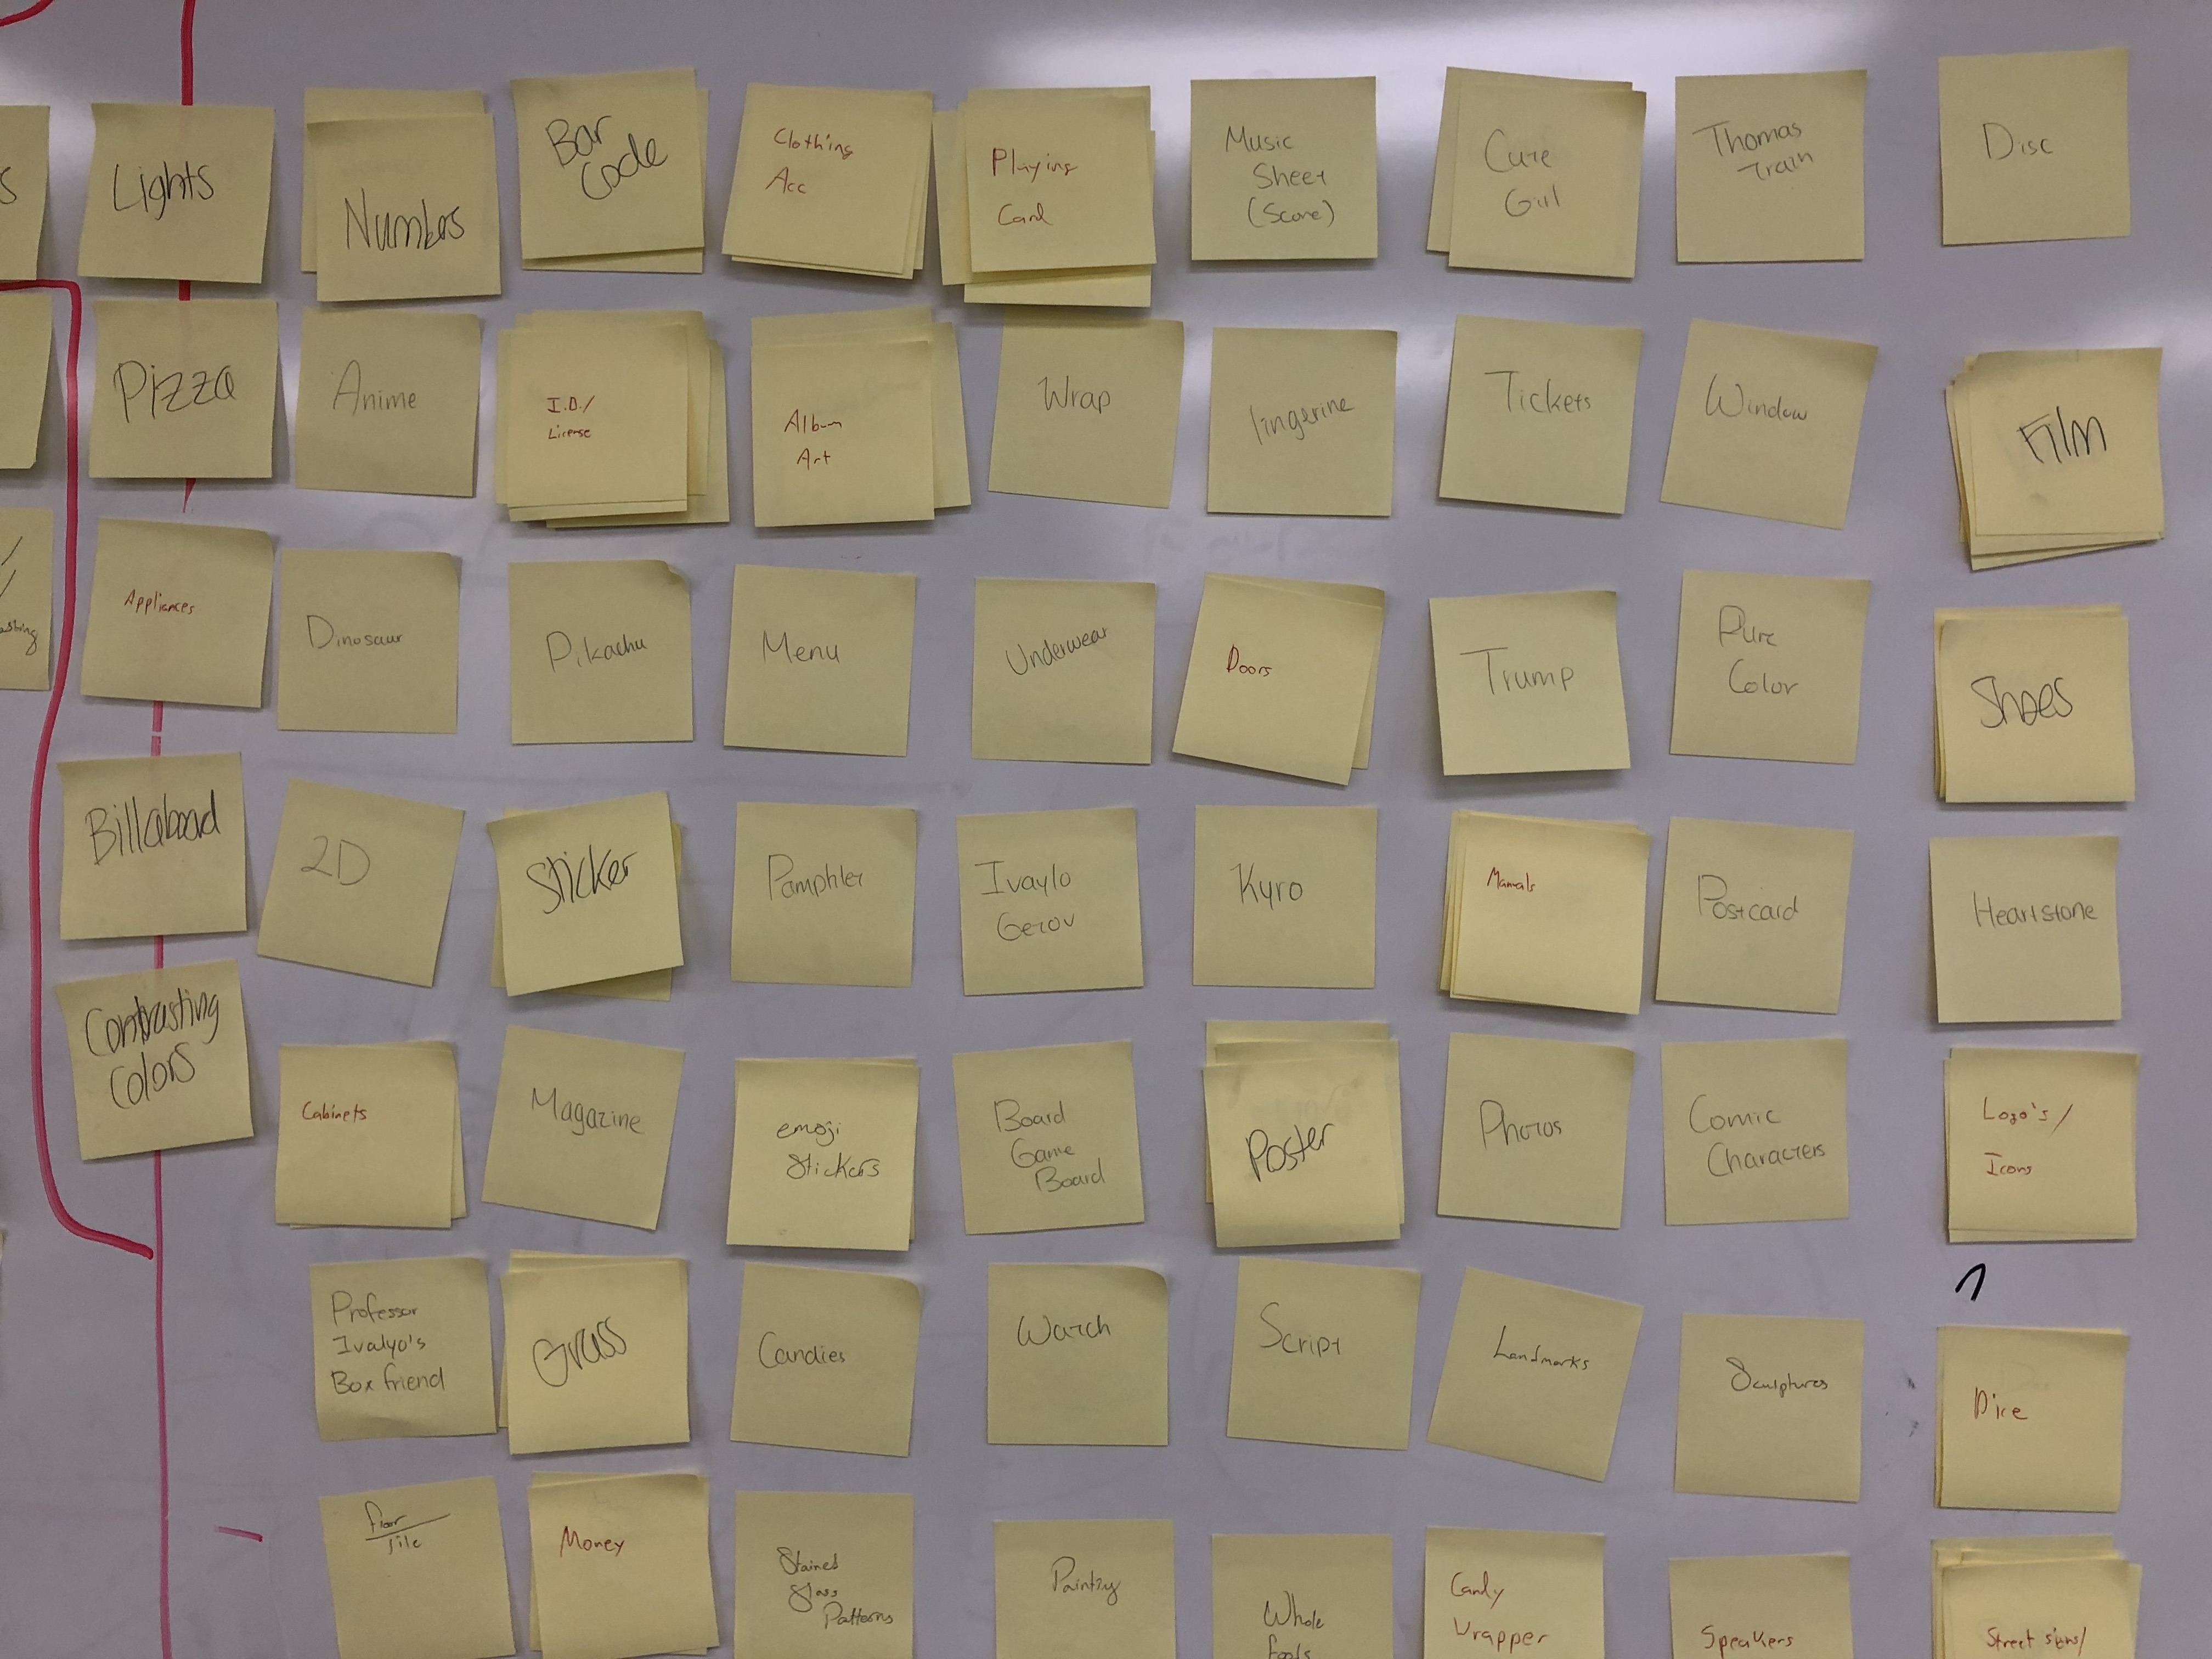 s
Lights
Numbers
Bar
Code
Clothing
Acc
Playing
Card
Music
Sheet
(Score)
Cute
Girl
Thomas
Train
Disc
Pizza
Anime
I.D./
License
Album
Art
Wrap
lingerine
Tickets
Window
Film
Appliances
Dinosaur
Pikachu
Menu
Underwear
Doors
Trump
Pure
Color
Shoes
Billaboad
2D
Sticker
Pamphlet
Ivaylo
Getov
Kyro
Postcard
Heartstone
Contrasting
Colors
Cabinets
Magazine
emoji
Stickers
Board
Game
Board
Poster
Photos
Comic
Characters
Logo's/
Icons
Professor
Ivalyo's
Boxfriend
Grass
Candies
Watch
Script
Landmarks
Sculptures
Dice
floor
Tile
Money
Stained
Glass
Patterns
Painting
Whole
foods
Candy
Wrapper
Speakers
Street signs/